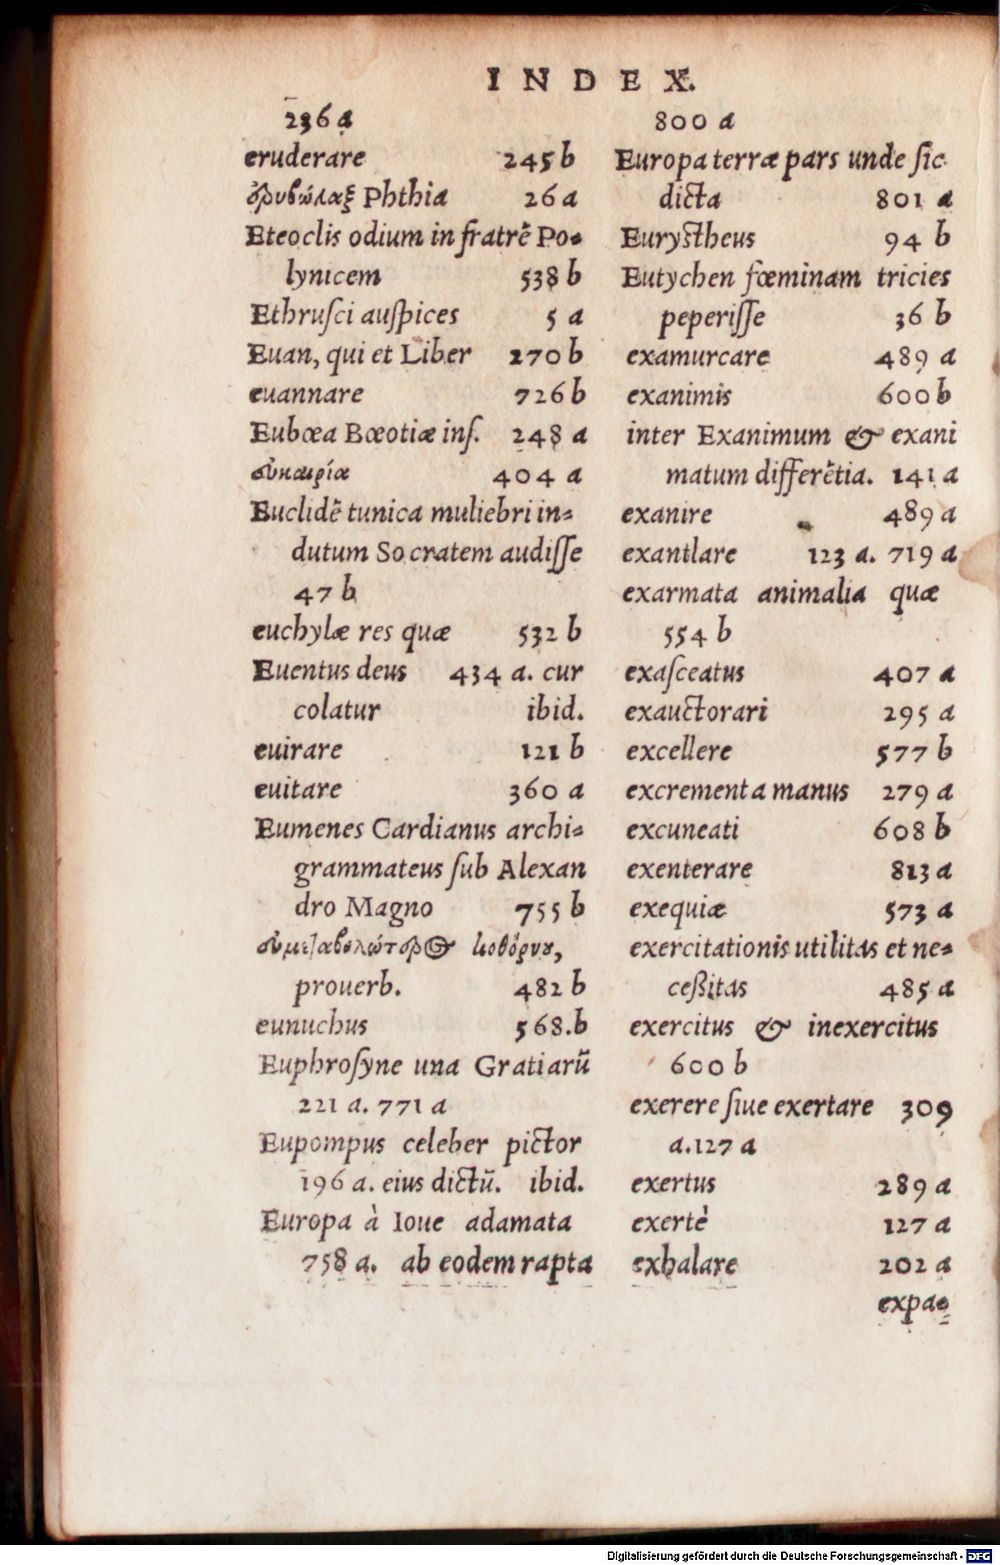 INDEX.
236 a
eruderare 245 b
ἐριβώλαξ Phthia 26 a
Eteoclis odium in fratrẽ Po-
lynicem 538 b
Ethrusci auspices 5 a
Euan, qui et Liber 270 b
euannare 726 b
Eubœa Bœotiæ ins. 248 a
εὐκαιρία 404 a
Euclidẽ tunica muliebri in-
dutum Socratem audisse
47 b
euchylæ res quæ 532 b
Euentus deus 434 a. cur
colatur ibid.
euirare 121 b
euitare 360 a
Eumenes Cardianus archi-
grammateus sub Alexan
dro Magno 755 b
εὐμεταβολώτερος κοθόρνου,
prouerb. 482 b
eunuchus 568.b
Euphrosyne una Gratiarũ
221 a. 771 a
Eupompus celeber pictor
196 a. eius dictũ. ibid.
Europa à Ioue adamata
758 a. ab eodem rapta
800 a
Europa terræ pars unde sic
dicta 801 a
Eurystheus 94 b
Eutychen fœminam tricies
peperisse 36 b
examurcare 489 a
exanimis 600 b
inter Exanimum & exani
matum differẽtia. 141 a
exanire 489 a
exantlare 123 a. 719 a
exarmata animalia quæ
554 b
exasceatus 407 a
exauctorari 295 a
excellere 577 b
excrementa manus 279 a
excuneati 608 b
exenterare 813 a
exequiæ 573 a
exercitationis utilitas et ne-
cessitas 485 a
exercitus & inexercitus
600 b
exerere siue exertare 309
a. 127 a
exertus 289 a
exertè 127 a
exhalare 202 a
expa-
Digitalisierung gefördert durch die Deutsche Forschungsgemeinschaft - DFG